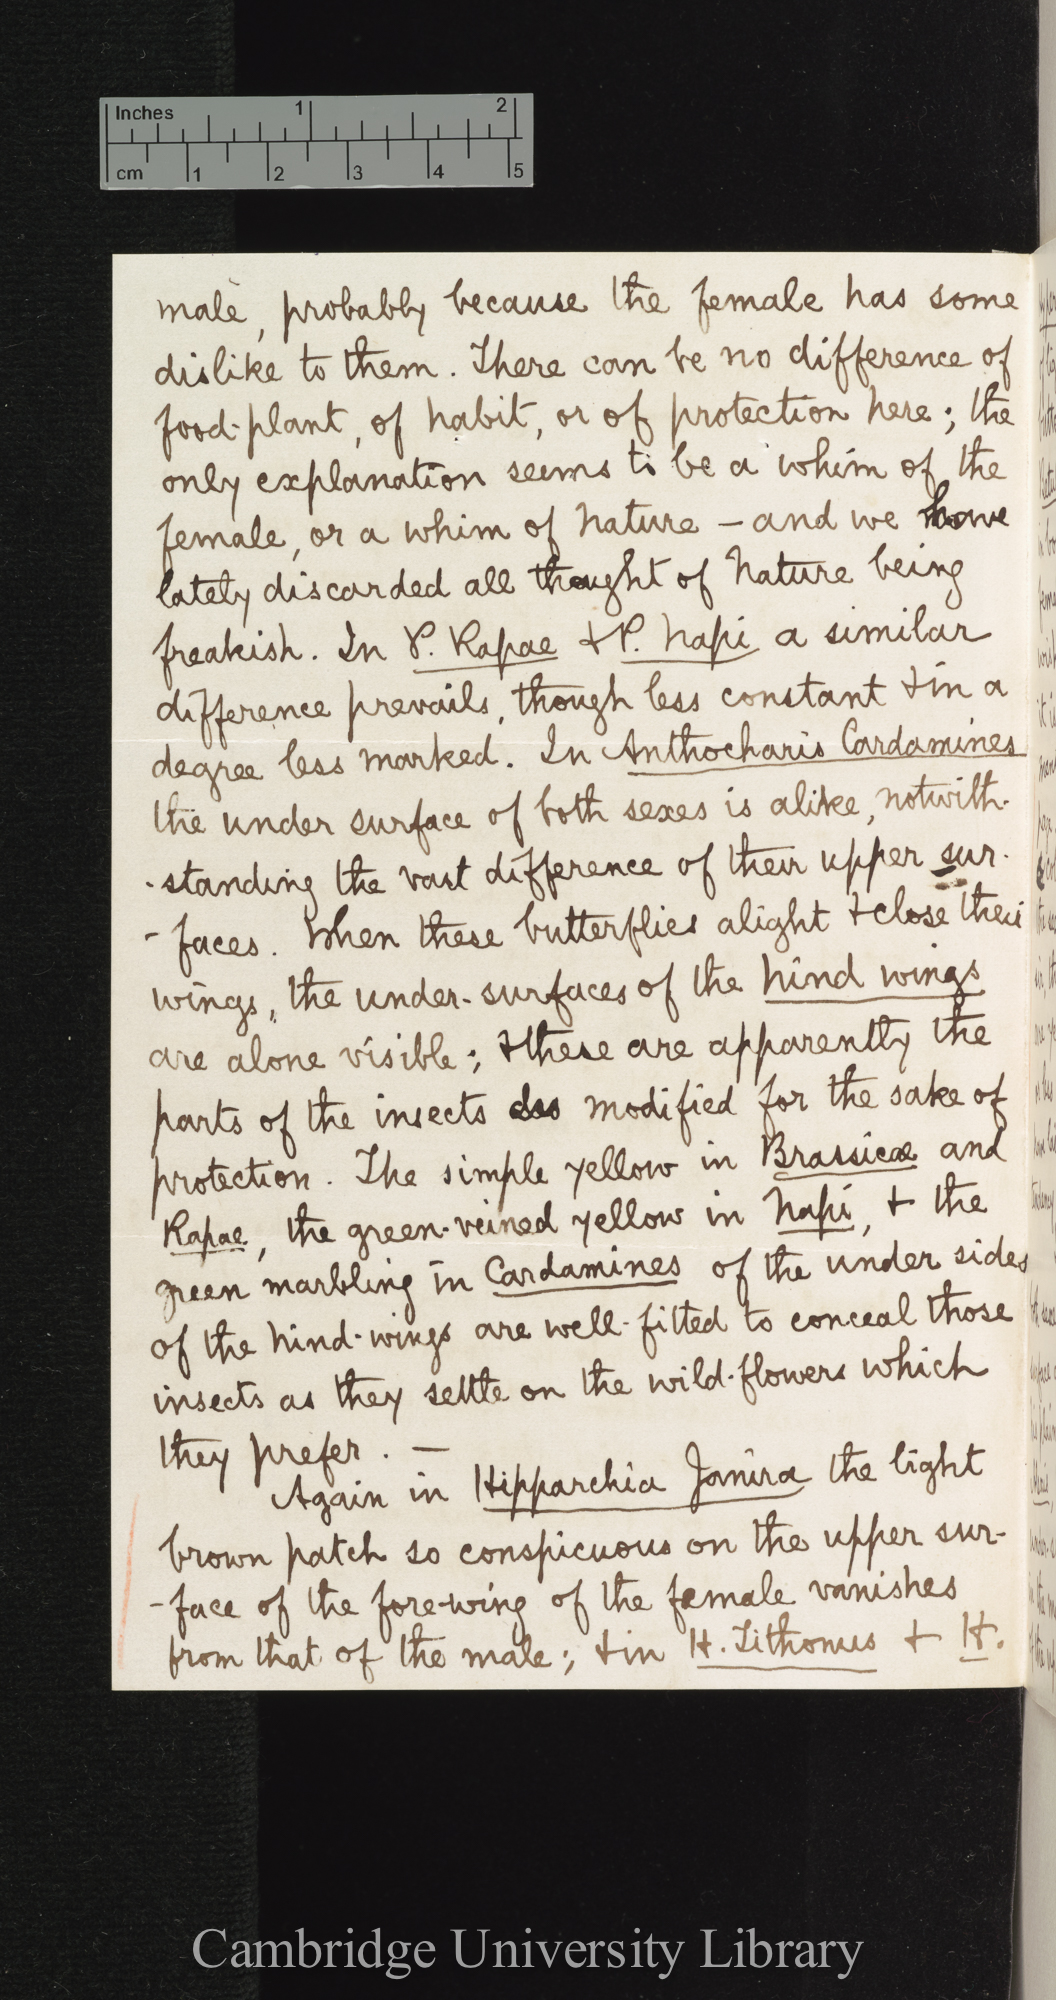 Inches 1 2
cm 1 2 3 4 5
male, probably because the female has some
dislike to them. There can be no difference of
food-plant, of habit, or of protection here; the
only explanation seems to be a whim of the
female, or a whim of Nature – and we have
lately discarded all thought of Nature being
freakish. In P. Rapae & P. Napi a similar
difference prevails, though less constant & in a
degree less marked. In Anthocharis Cardamines
the under surface of both sexes is alike, notwith-
-standing the vast difference of their upper sur-
-faces. When these butterflies alight & close their
wings, the under-surfaces of the hind wings
are alone visible; & these are apparently the
parts of the insects modified for the sake of
protection. The simple yellow in Brassicae and
Rapae, the green-veined yellow in Napi, & the
green marbling in Cardamines of the under sides
of the hind-wings are well-fitted to conceal those
insects as they settle on the wild-flowers which
they prefer. —
Again in Hipparchia Janira the light
brown patch so conspicuous on the upper sur-
-face of the fore-wing of the female vanishes
from that of the male; & in H. Tithonus & H.
Cambridge University Library